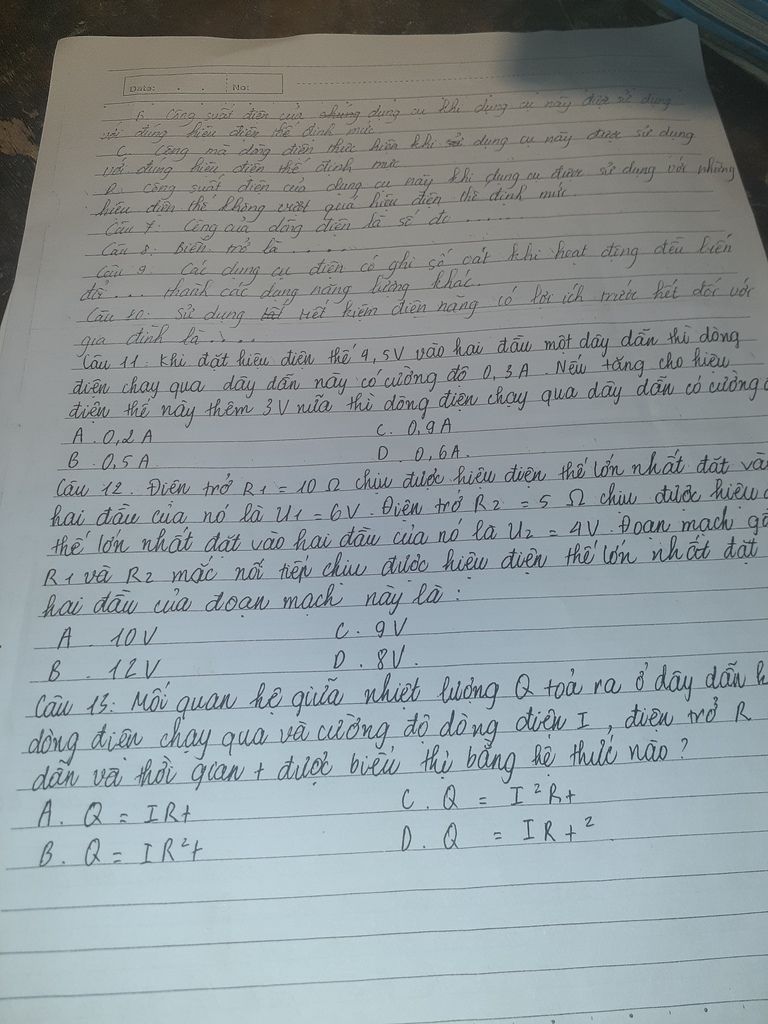 Date: . . No:
B. Công suất điện của dụng cụ khi dụng cụ này được sử dụng
với đúng hiệu điện thế định mức
C. Công mà dòng điện thực hiện khi dụng cụ này được sử dụng
với đúng hiệu điện thế định mức
D. Công suất điện của dụng cụ này khi dụng cụ được sử dụng với những
hiệu điện thế không vượt quá hiệu điện thế định mức
Câu 7: Công của dòng điện là số đo .......
Câu 8: Biến trở là .....
Câu 9: Các dụng cụ điện có ghi số oát khi hoạt động đều biến
đổi ... thành các dạng năng lượng khác.
Câu 10: Sử dụng tiết kiệm điện năng có lợi ích trước hết đối với
gia đình là .....
Câu 11: Khi đặt hiệu điện thế 4,5V vào hai đầu một dây dẫn thì dòng
điện chạy qua dây dẫn này có cường độ 0,3A. Nếu tăng cho hiệu
điện thế này thêm 3V nữa thì dòng điện chạy qua dây dẫn có cường
A. 0,2A C. 0,9A
B. 0,5A D. 0,6A.
Câu 12. Điện trở R1 = 10 Ω chịu được hiệu điện thế lớn nhất đặt
hai đầu của nó là U1 = 6V. Điện trở R2 = 5 Ω chịu được hiệu
thế lớn nhất đặt vào hai đầu của nó là U2 = 4V. Đoạn mạch
R1 và R2 mắc nối tiếp chịu được hiệu điện thế lớn nhất đặt
hai đầu của đoạn mạch này là :
A. 10V C. 9V
B. 12V D. 8V.
Câu 13: Mối quan hệ giữa nhiệt lượng Q toả ra ở dây dẫn
dòng điện chạy qua và cường độ dòng điện I, điện trở R
dẫn và thời gian t được biểu thị bằng hệ thức nào?
A. Q = IRt C. Q = I²Rt
B. Q = IR²t D. Q = IRt²